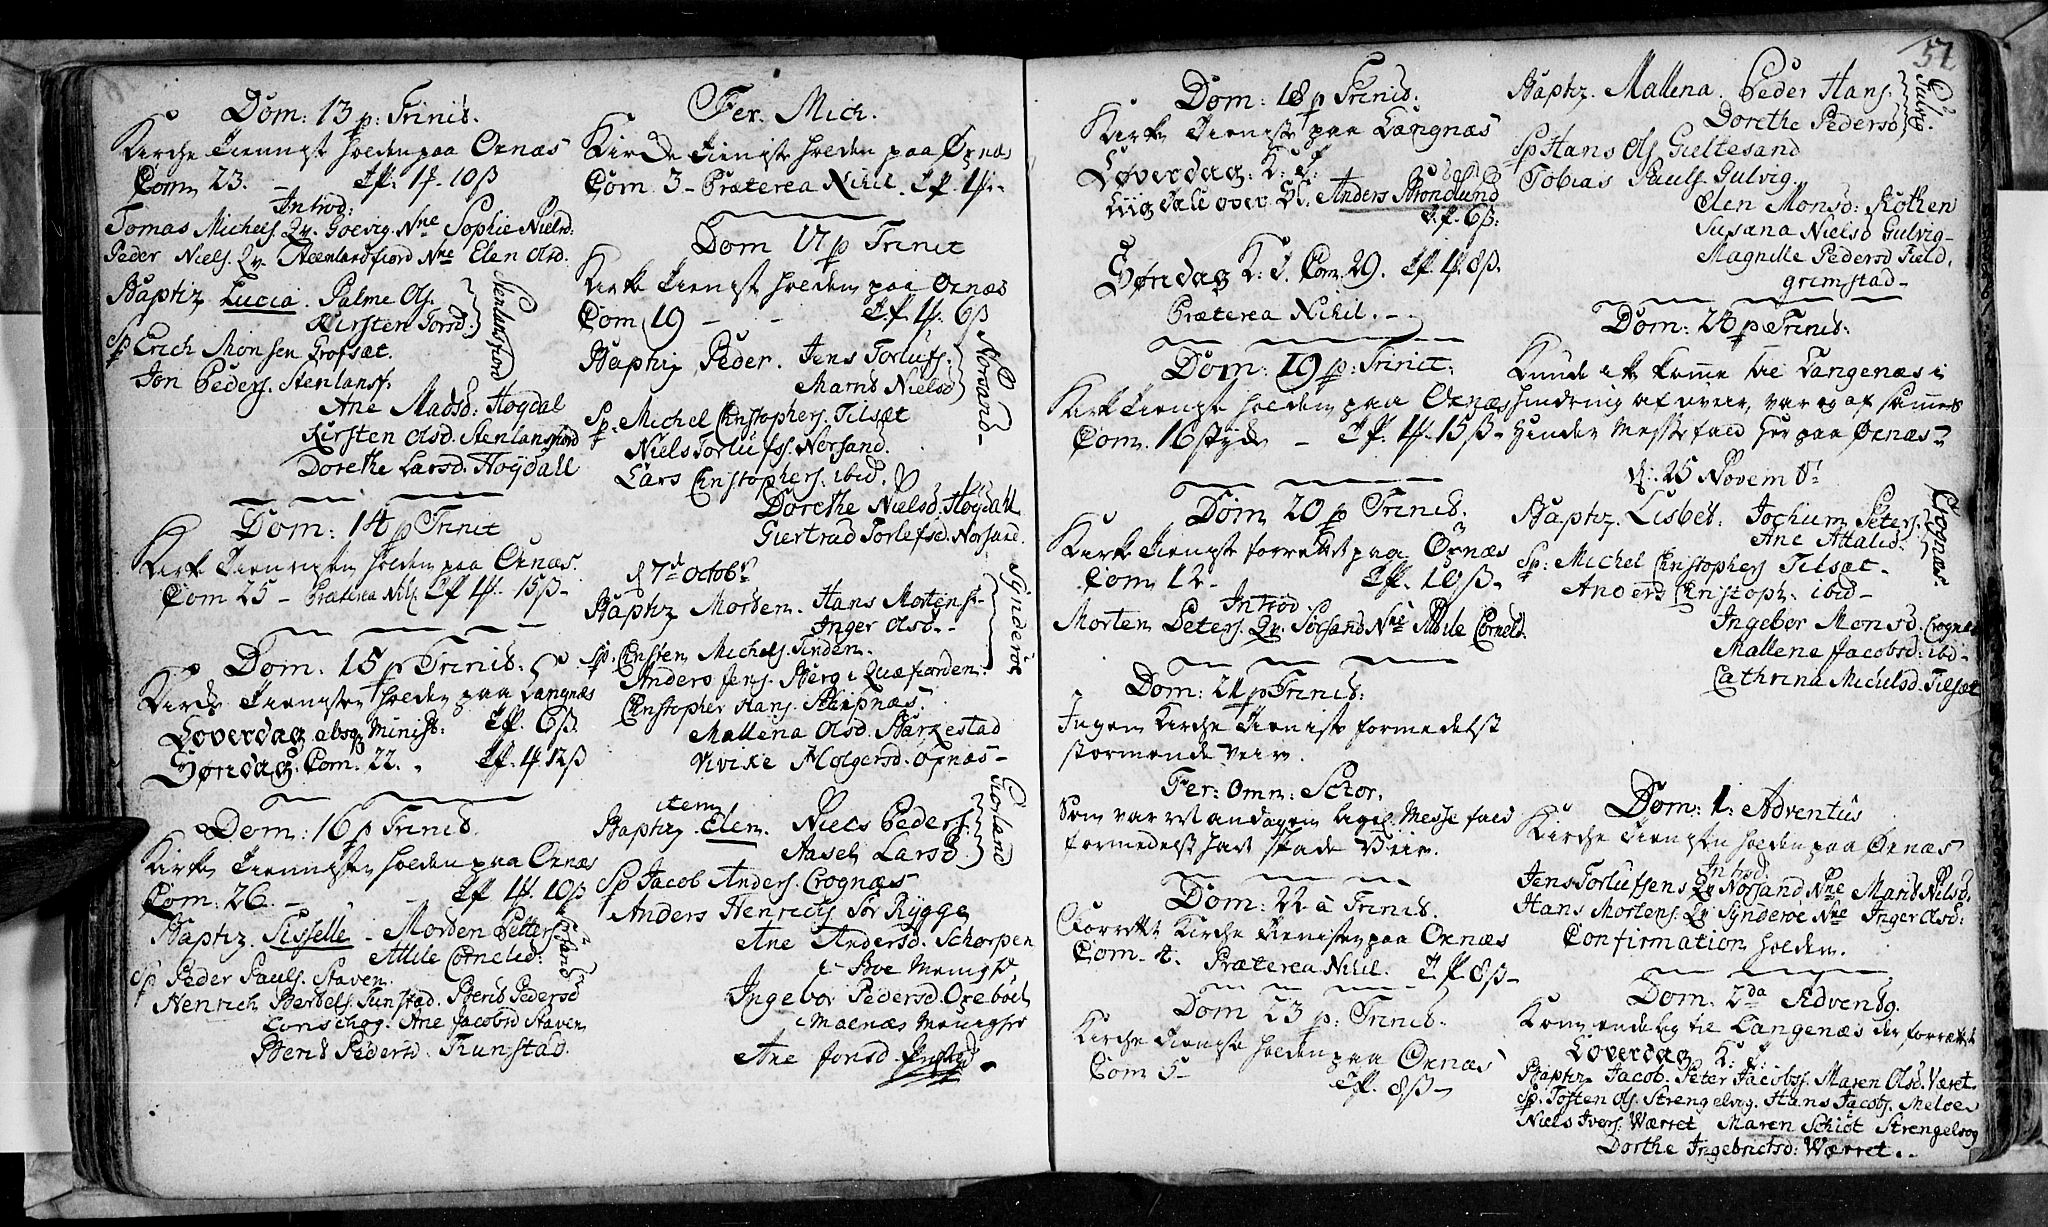 Dom: 13 p: Trinit.
Kirche Tienniste holden paa Ornæs
Com 23. – Tfl. 1 10 ß
Introd:
Tomas Michels. Qv. Goevig. Nne Sophie Nielsd:
Peder Niels. Qv. Steenlandsfiord Nne Elen Olsd.
Baptiz Lucia. Palme Ols.
Kirsten Torsd.
Stenlansfiord
Sp Erich Monsen Grofsæt.
Jon Peders. Stenlansf.
Ane Madsd: Høgdal
Kirsten Olsd. Stenlansfiord
Dorethe Larsd. Høydall
Dom: 14 p Trinit
Kirke Tiennisten holden paa Ornæs.
Com 25 – Præterea Nihil 15 ß –
Dom: 15 p Trinit:
Kirche Tiennisten holden paa Langnæs
Loverdag absq Minist: 6 ß
Søndag. Com. 22. 12 ß
Dom: 16 p Trinit.
Kirke Tiennisten holden paa Ornæs
Com: 26. – 10 ß
Baptiz. Sisselle – Morden Petters
Attile Cornelid:
Sørsand
Sp Peder Pauls. Staven
Henrich Bertels. Tunstad. Berit Pedersd
Ane Jacobsd Staven
Berit Pedersd. Tunstad.
Fer. Mich.
Kirche Tieniste holden paa Ørnæs
Com 3 – Præterea Nihil.
Dom 17 p Trinit
Kirke Tienist holden paa Ornæs
Com 19 – – 6 ß
Baptiz Peder. Jens Torlufs.
Marit Nielsd
Norsand –
Sp. Michel Christophers. Tilsæt
Niels Torlufss. Norsand.
Lars Christophers. ibid.
Dorethe Nielsd. Høydahl
Giertrud Torlefsd. Norsand.
d 7de Octobr
Baptiz Morden. Hans Mortens –
Inger Olsd –
Synderøe
Sp. Christen Michels. Tinden.
Anders Jens. Berg i Quæfiorden.
Christopher Hans. Skipnæs.
Mallena Olsd. Børkestad
Vivike Holgersd. Øxnæs –
item
Baptiz. Elen. Niels Peders.
Aaseh Larsd.
Guorland
Sp Jacob Anders. Crognæs
Anders Henrichs Sør Rygge
Ane Andersd. Schorpen
i Bøe Menighd,
Ingebor Pedersd. Oxebøel
i Malnæs Menighd
Ane Jonsd.
51
Dom: 18 p Trinit.
Kirke Tieniste paa Langnæs
Løverdag: K: T:
Liig Tale over Sl. Anders Brondlund
6 ß:
Søndag K. T. Com. 29. 8 ß.
Præterea Nihil. –
Dom: 19 p: Trinit:
Kirk Tieniste holden paa Ornæs
Com. 16 stykr – 15 ß –
Dom 20 p Trinit.
Kirke Tieniste forrettet paa Ørnæs
Com 12 – 10 ß –
Introd
Morten Peters. Qv. Sørsand Nne Attile Cornelid.
Dom: 21 p Trinit:
Ingen Kirche Tieniste formedelst
stormende Veir.
Fer: Omn: Schor.
Som var andagen ligel. Messe fald
formedelst hart stade Veir.
Dom: 22 à Trinit.
Forrettet Kirche Tienisten paa Ornæs
Com. 4. Præterea Nihil. 8 ß –
Dom 23 p: Trinit.
Kirche Tieniste holden paa Ornæs
Com 5 – 8 ß –
Baptiz. Mallena. Peder Hans.
Dorethe Pedersd
Gulvig.
Sp Hans Ols Gieltesand
Tobias Pauls. Gulvig.
Elen Monsd: Kothen
Susana Nielsd Gulvig –
Magnille Pedersd Field,
grimstad –
Dom: 24 p Trinit:
Kunde ik komme til Langenæs i
hindring af uveir, var og af sammes
Hinder Messe fald her paa Ørnæs –
d. 25 Novembr
Baptiz. Lisbet. Jochum Peters.
Ane Attalid.
Crognæs
Sp: Michel Christophers Tilsæt –
Anders Christoph. ibid –
Ingebor Monsd. Crognæs
Mallene Jacobsd: ibd –
Cathrina Michelsd. Tilsæt
Dom: 1: Adventus
Kirche Tiensten holden paa Ørnæs
Introd.
Jens Torlufsens Qv Norsand Nne Marit Nilsd.
Hans Mortens. Qv Synderøe Nne Inger Olsd:
Confirmation holden.
Dom. 2da Advent.
Kom endelig til Langenæs der forrættet
Loverdag K: T:
Baptiz Jacob. Peter Jacobss. Maren Olsd. Været.
Sp. Tosten Ols. Strengelvig. Hans Jacobs. Meløe
Niels Ivers: Wærret Maren Schiøt Strengelvog
Dorthe Ingebrictsd: Wærret..